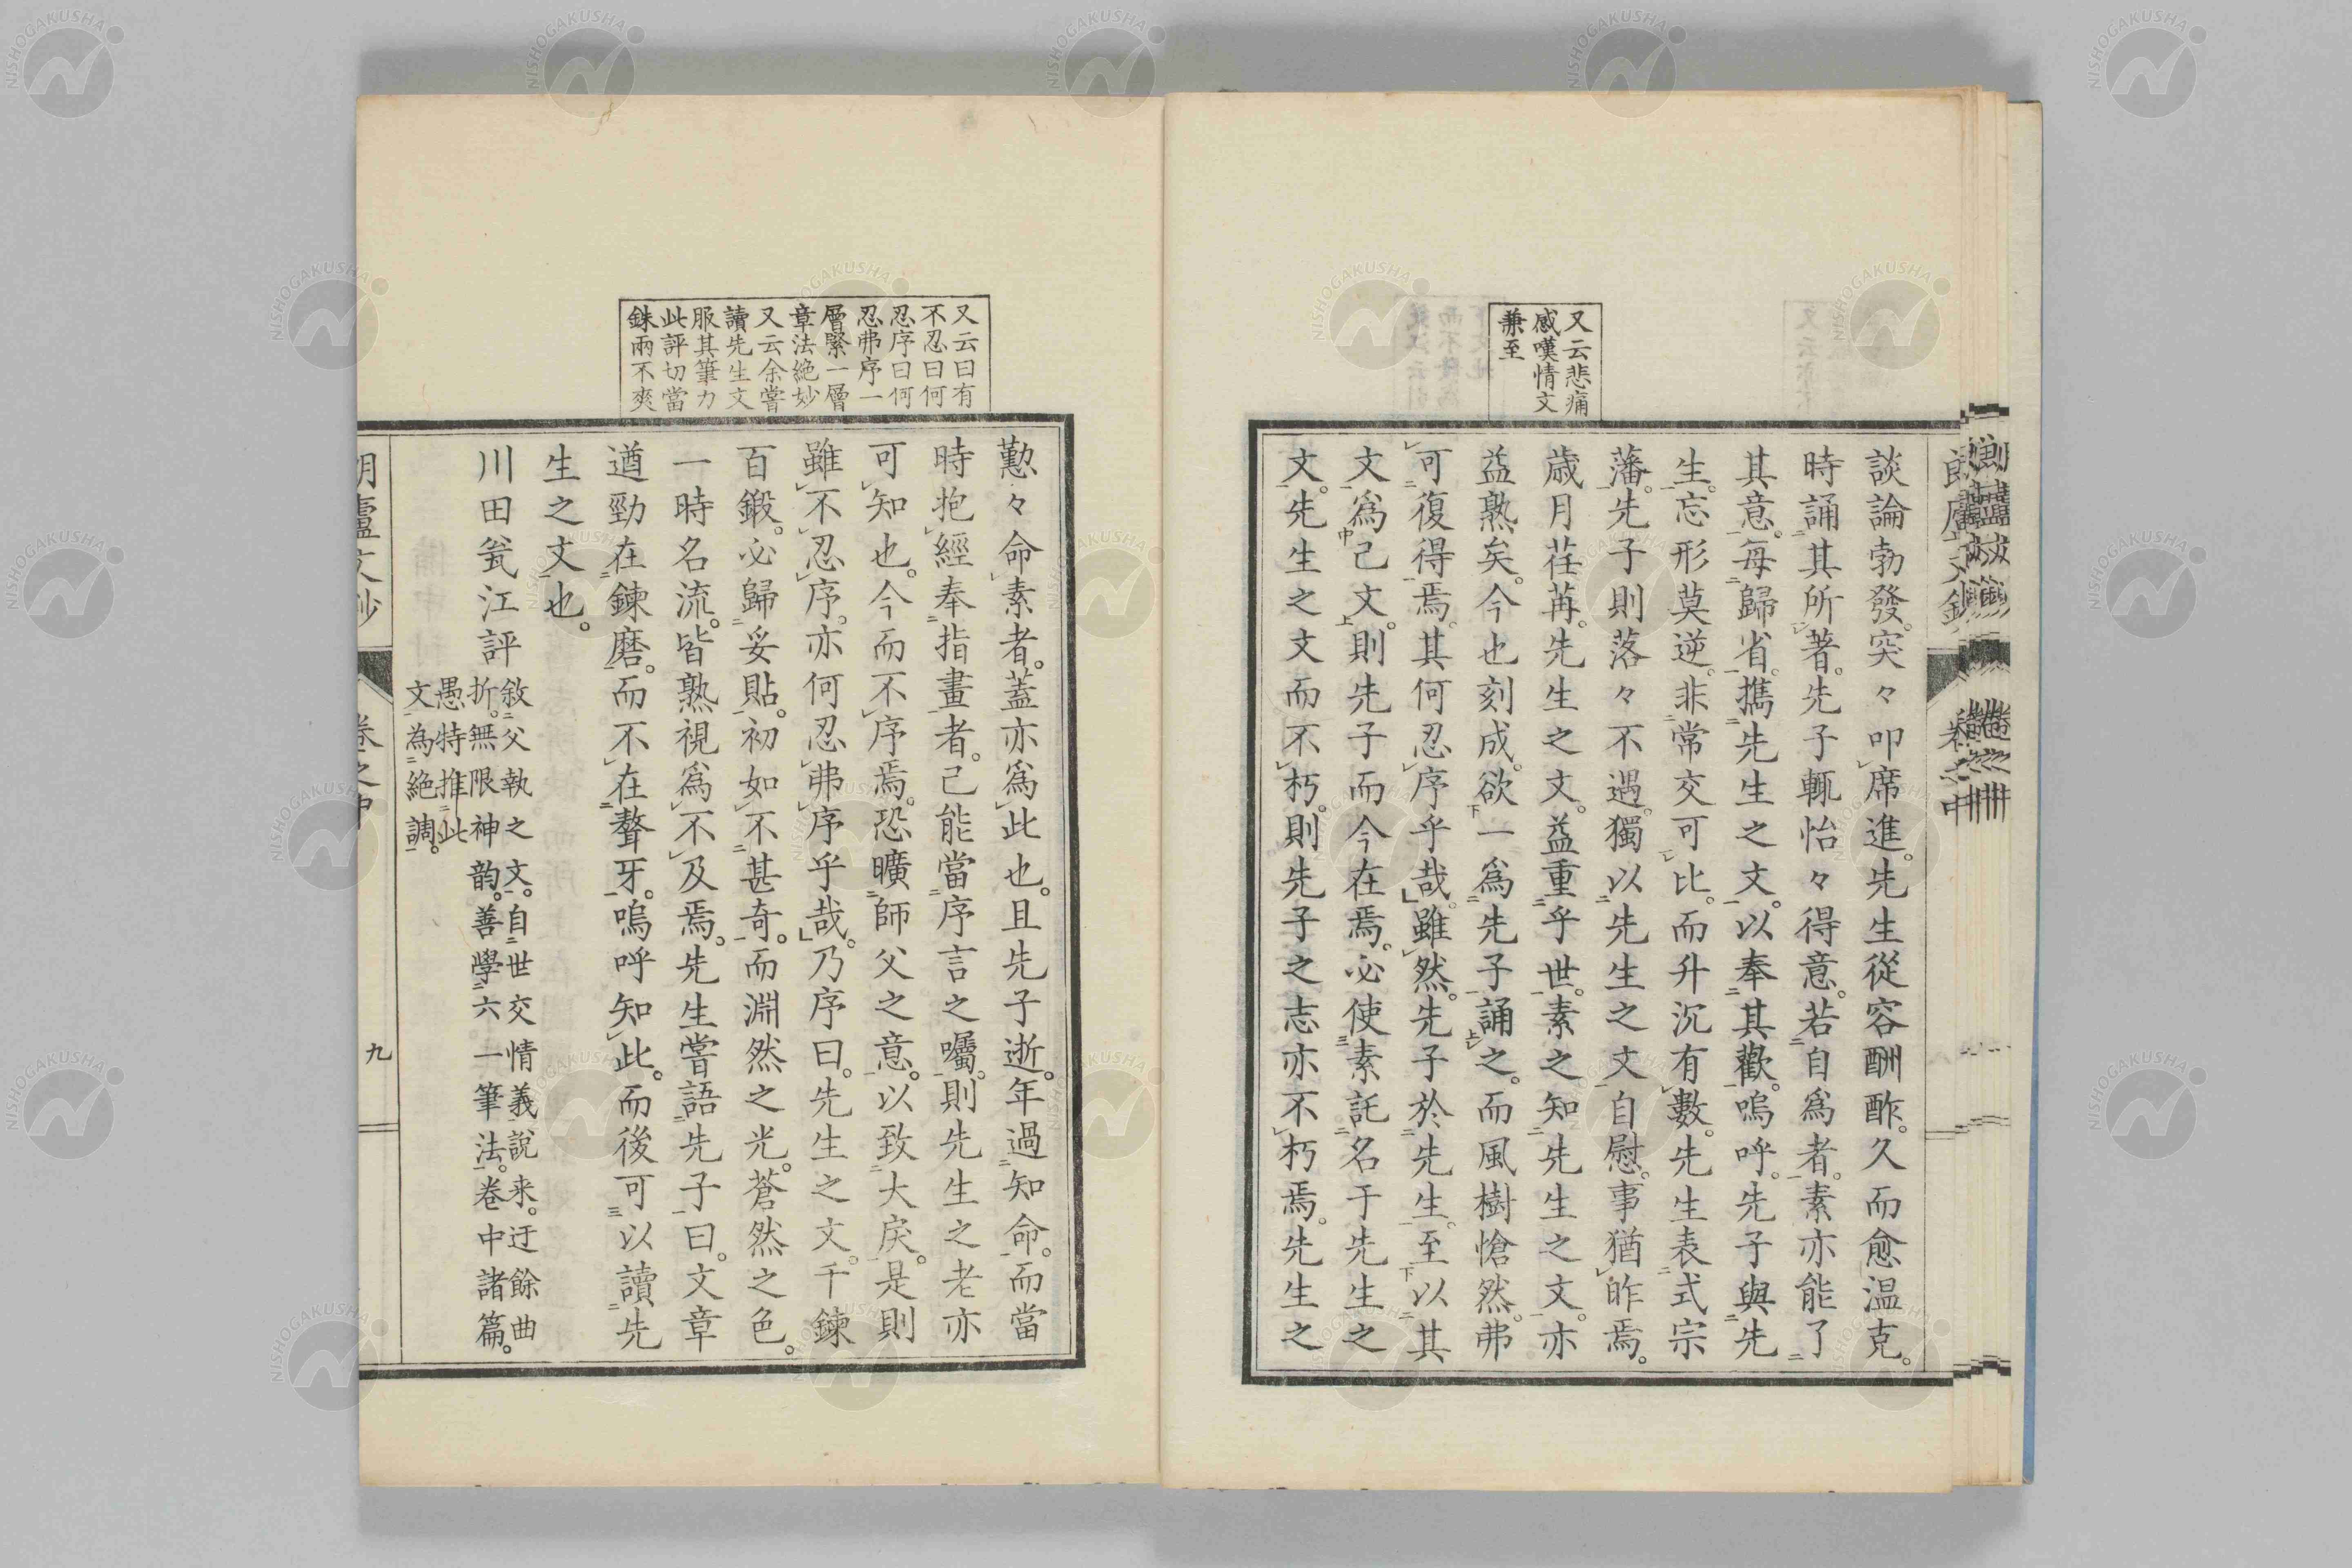 又云悲痛
感嘆情文
兼至
談論勃發。突々叩席進。先生從容酬酢。久而愈温克。
時誦其所著。先子輒怡々得意。若自爲者。素亦能了
其意。每歸省。攜先生之文。以奉其歡。嗚呼。先子與先
生。忘形莫逆。非常交可比。而升沉有數。先生表式宗
藩。先子則落々不遇。獨以先生之文自慰。事猶昨焉。
歳月荏苒。先生之文。益重乎世。素之知先生之文。亦
益熟矣。今也刻成。欲一爲先子誦之。而風樹愴然。弗
可復得焉。其何忍序乎哉。雖然。先子於先生。至以其
文爲己文。則先子而今在焉。必使素託名于先生之
文。先生之文而不朽。則先子之志亦不朽焉。先生之
又云曰有
不忍曰何
忍序曰何
忍弗序一
層緊一層
章法絶妙
又云余嘗
讀先生文
服其筆力
此評切當
銖兩不爽
懃々命素者。蓋亦爲此也。且先子逝。年過知命。而當
時抱經奉指畫者。己能當序言之囑。則先生之老亦
可知也。今而不序焉。恐曠師父之意。以致大戾。是則
雖不忍序。亦何忍弗序乎哉。乃序曰。先生之文。千鍊
百鍛。必歸妥貼。初如不甚奇。而淵然之光。蒼然之色。
一時名流。皆熟視爲不及焉。先生嘗語先子曰。文章
遒勁在鍊磨。而不在聱牙。嗚呼知此。而後可以讀先
生之文也。
川田甕江評
敘父執之文。自世交情義說来。迂餘曲
折。無限神韵。善學六一筆法。卷中諸篇。
愚特推此
文為絕調。
九